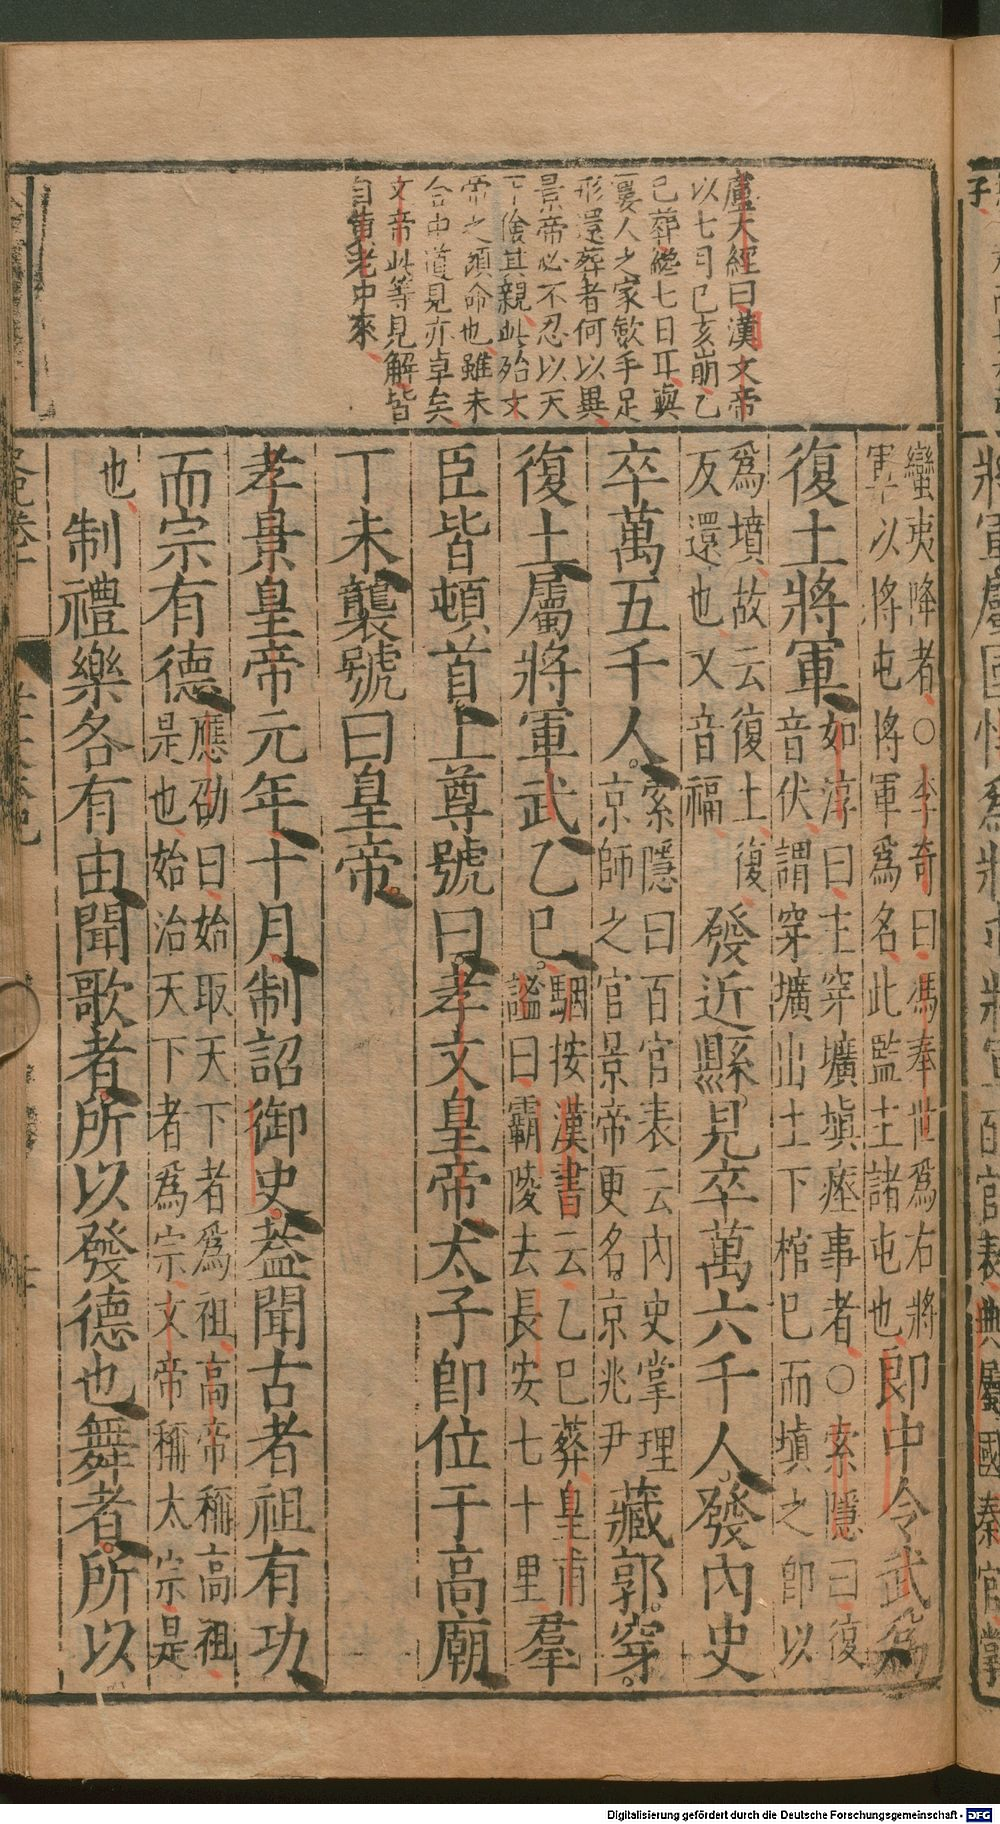 盧大經曰漢文帝
以七月己亥崩乙
巳葬纔七日耳與
窶人之家斂手足
形還葬者何以異
景帝必不忍以天
下儉其親此殆文
帝之顧命也雖未
合中道見亦卓矣
文帝此等見解皆
自黃老中來
蠻夷降者○李奇曰馮奉世爲右將
軍以將屯將軍爲名此監主諸屯也郎中令武爲
復土將軍如淳曰主穿壙塡瘞事者○索隱曰復
音伏謂穿壙出土下棺巳而塡之卽以
爲墳故云復土復
反還也又音福發近縣見卒萬六千人發內史
卒萬五千人索隱曰百官表云內史掌理
京師之官景帝更名京兆尹藏郭穿
復土屬將軍武乙巳駰按漢書云乙巳葬皇甫
謐曰霸陵去長安七十里羣
臣皆頓首上尊號曰孝文皇帝太子卽位于高廟
丁未襲號曰皇帝
孝景皇帝元年十月制詔御史蓋聞古者祖有功
而宗有德應劭曰始取天下者爲祖高帝稱高祖
是也始治天下者爲宗文帝稱太宗是
也制禮樂各有由聞歌者所以發德也舞者所以
Digitalisierung gefördert durch die Deutsche Forschungsgemeinschaft - DFG